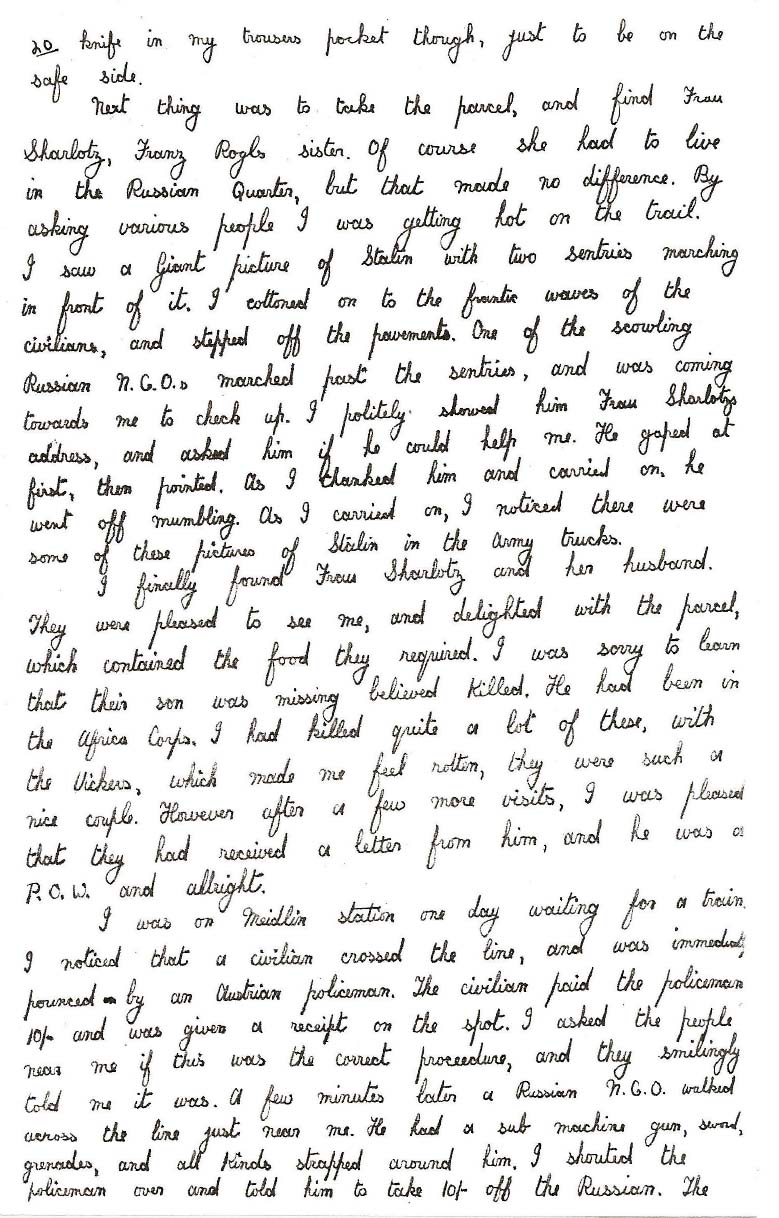 20 knife in my trousers pocket though, just to be on the
safe side.
Next thing was to take the parcel, and find Frau
Sharlotz, Franz Rogls sister. Of course she had to live
in the Russian Quarter, but that made no difference. By
asking various people I was getting hot on the trail.
I saw a Giant picture of Stalin with two sentries marching
in front of it. I cottoned on to the frantic waves of the
civilians, and stepped off the pavements. One of the scowling
Russian N.C.O.s marched past the sentries, and was coming
towards me to check up. I politely showed him Frau Sharlotzs
address, and asked him if he could help me. He gaped at
first, then pointed. As I thanked him and carried on, he
went off mumbling. As I carried on, I noticed there were
some of these pictures of Stalin in the army trucks.
I finally found Frau Sharlotz and her husband.
They were pleased to see me, and delighted with the parcel,
which contained the food they required. I was sorry to learn
that their son was missing believed killed. He had been in
the Africa Corps. I had killed quite a lot of these, with
the Vickers, which made me feel rotten, they were such a
nice couple. However after a few more visits, I was pleased
that they had received a letter from him, and he was a
P.O.W. and allright.
I was on Meidlin station one day waiting for a train.
I noticed that a civilian crossed the line, and was immediatly
pounced by an Austrian policeman. The civilian paid the policeman
10/- and was given a receipt on the spot. I asked the people
near me if this was the correct proceedure, and they smilingly
told me it was. A few minutes later a Russian N.C.O. walked
across the line just near me. He had a sub machine gun, sword,
grenades, and all kinds strapped around him. I shouted the
policeman over and told him to take 10/- off the Russian. The